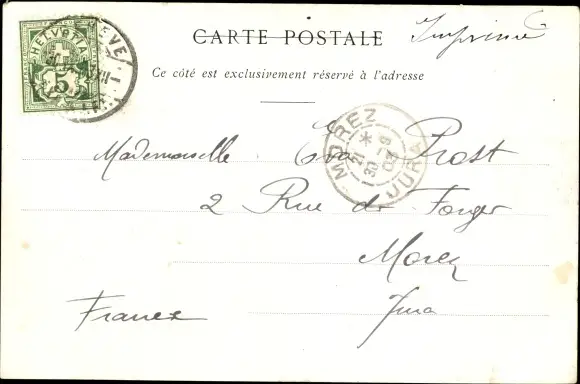 HELVETIA
5
CARTE POSTALE
Imprimé
Ce côté est exclusivement réservé à l'adresse
MOREZ
21 *
30 -9
JURA
Mademoiselle Eva Prost
2 Rue du Forger
Morez
Jura
France